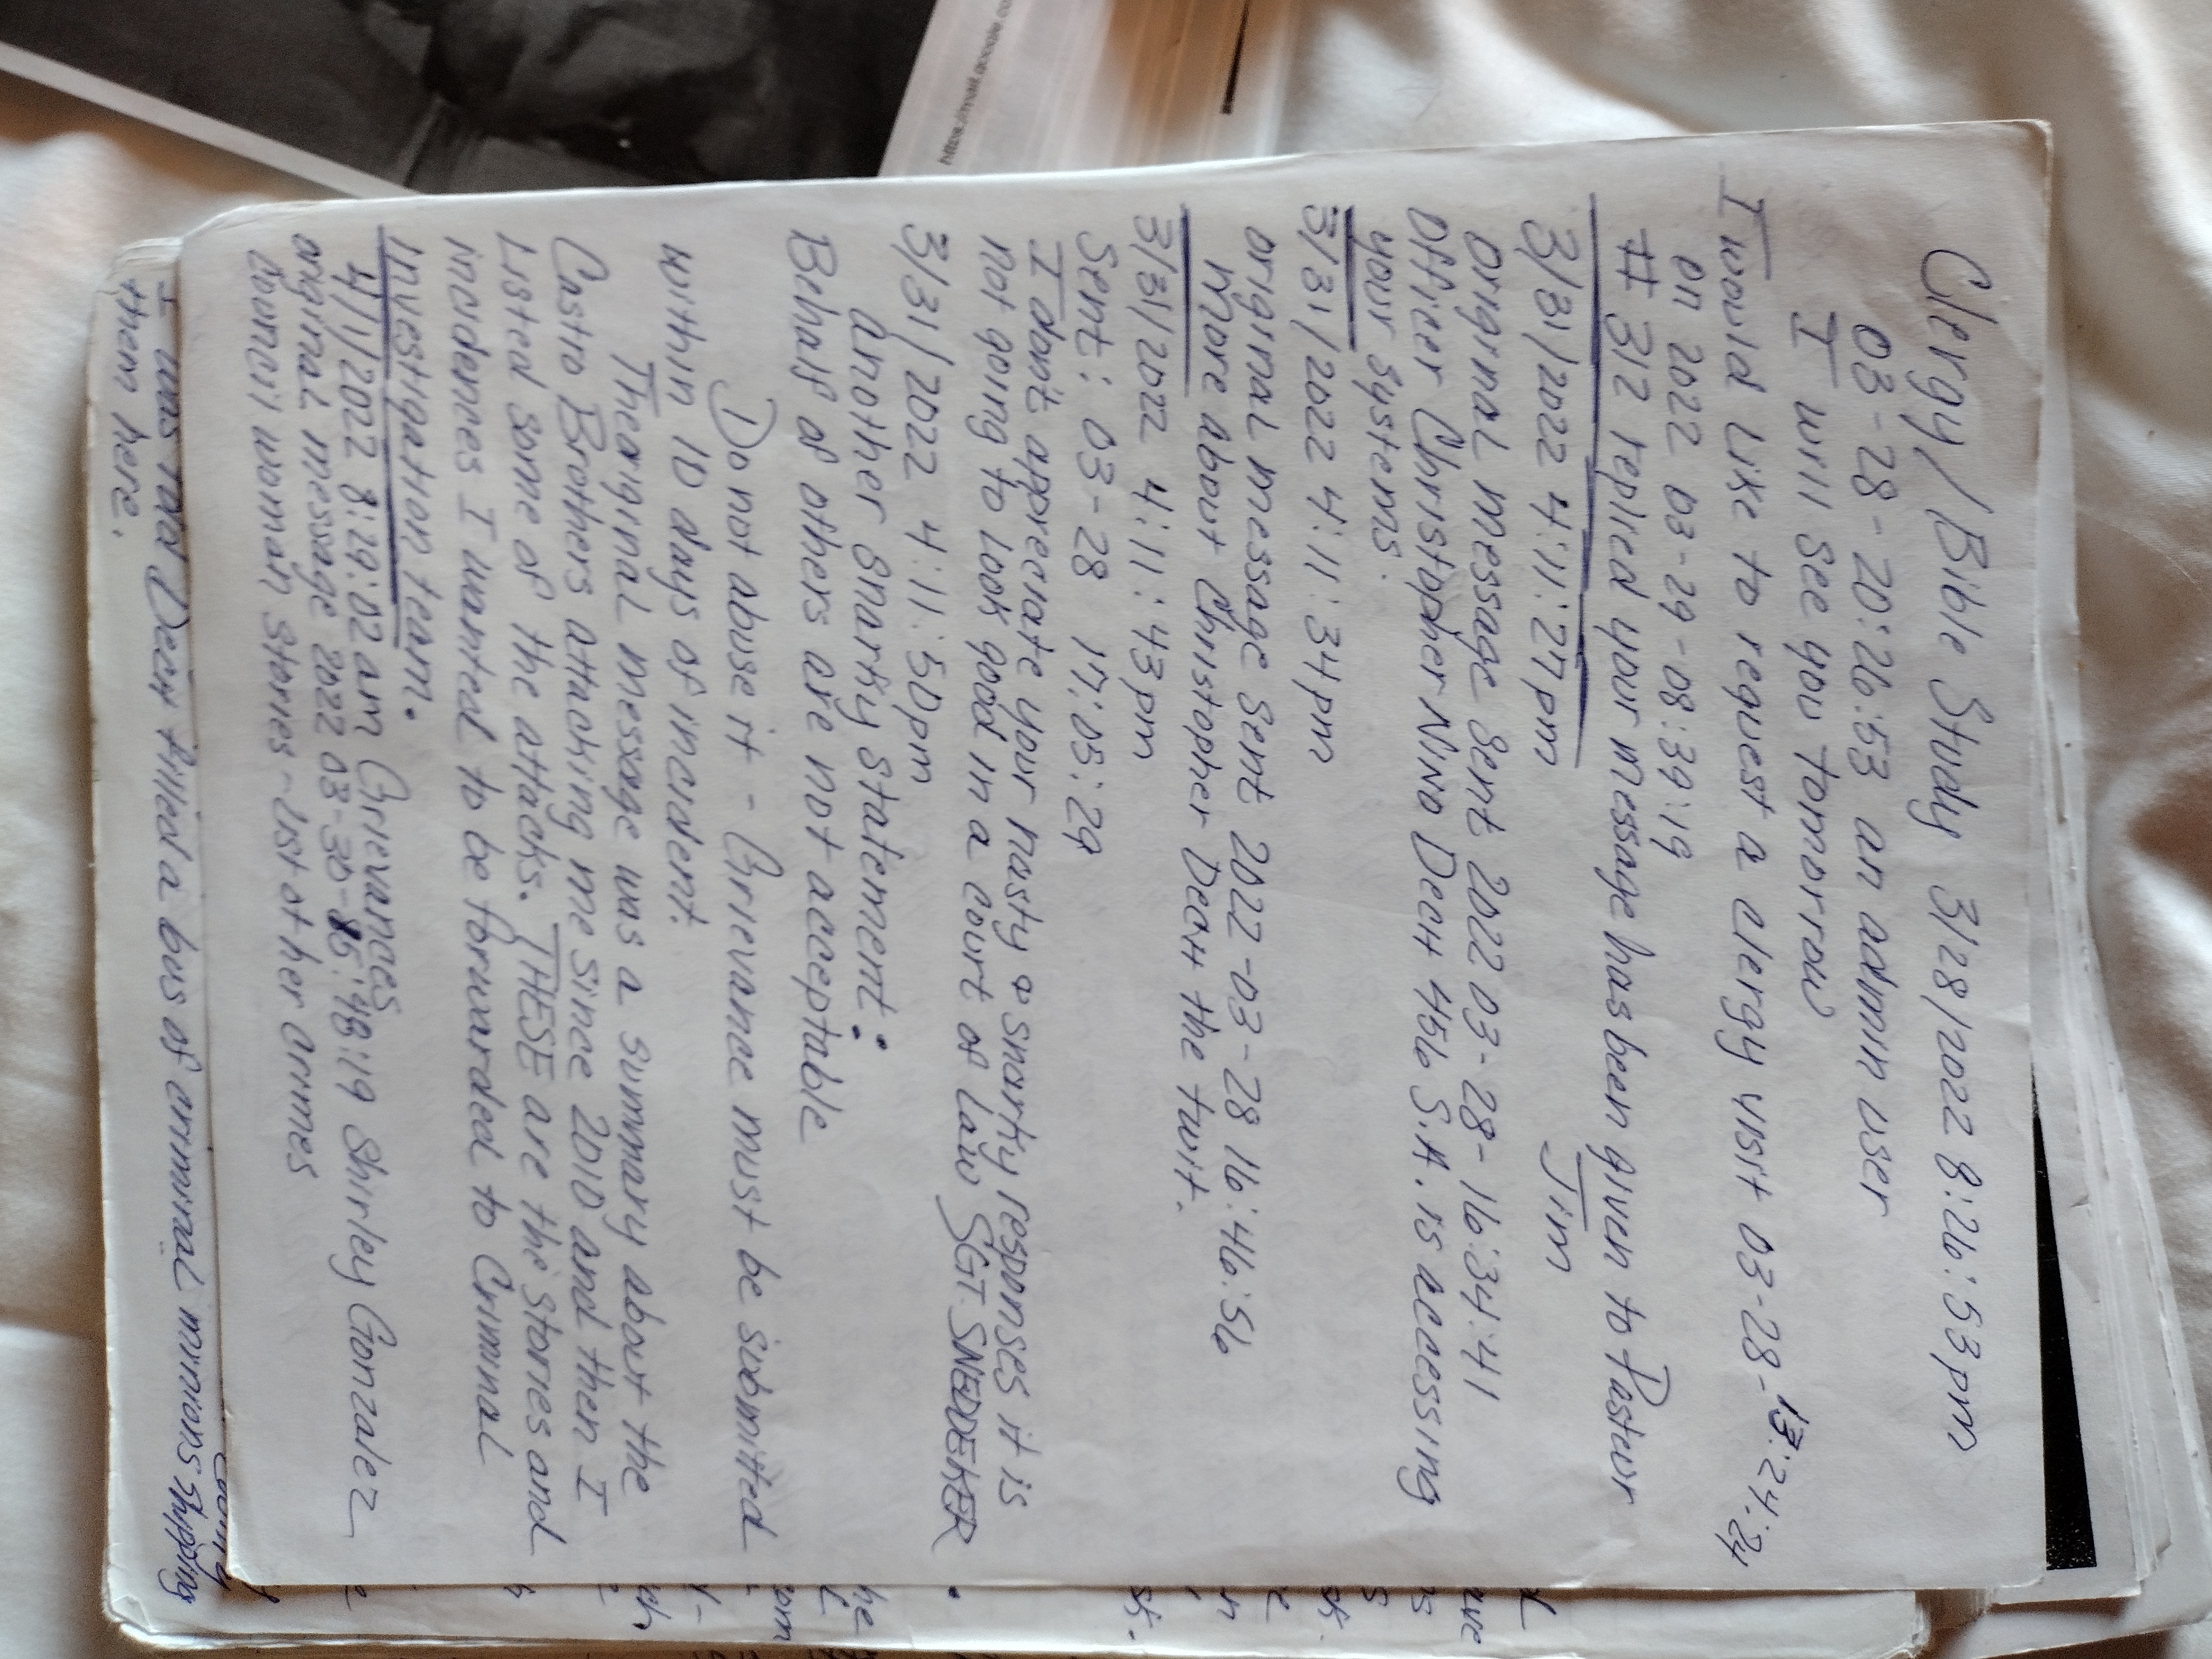 Clergy/Bible Study 3/28/2022 8:26:53pm
03-28-20:26:53 an admin user
I will see you tomorrow
I would like to request a clergy visit 03-28-13:24:24
on 2022 03-29-08:39:19
# 312 replied your message has been given to Pastor
Jim
3/31/2022 4:11:27pm
Original message sent 2022 03-28-16:34:41
Officer Christopher Nino DecH 456 S.A. is accessing
your systems.
3/31/2022 4:11:34pm
original message sent 2022-03-28 16:46:56
more about Christopher DecH the twit.
3/31/2022 4:11:43pm
Sent: 03-28 17:05:29
I dont appreciate your nasty & snarky responses it is
not going to look good in a court of law SGT SNEDDEKER.
3/31/2022 4:11:50pm
another snarky statement:
Behalf of others are not acceptable
Do not abuse it - Grievance must be submitted
within 10 days of incident.
The original message was a summary about the
Castro Brothers attacking me since 2010 and then I
Listed some of the attacks. THESE are the stories and
incidences I wanted to be forwarded to Criminal
investigation team.
4/1/2022 8:29:02am Grievances
original message 2022 03-30-15:48:19 Shirley Gonzalez
council woman stories - List of her crimes
I was told DecH filled a bus of criminal minions shipping
them here.
https://mail.google.co